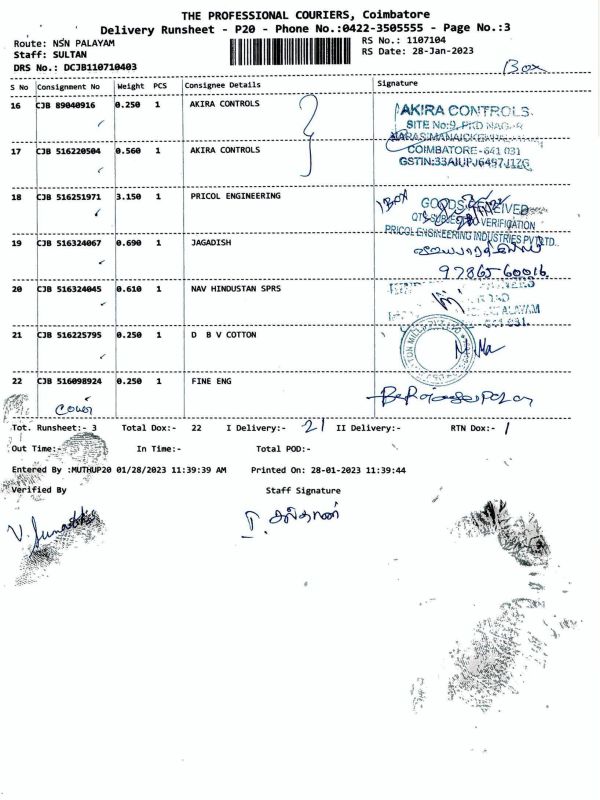 THE PROFESSIONAL COURIERS, Coimbatore
Delivery Runsheet - P20 - Phone No.:0422-3505555 - Page No.:3
Route: NSN PALAYAM
RS No.: 1107104
Staff: SULTAN
RS Date: 28-Jan-2023
DRS No.: DCJB110710403
Box
S No Consignment No Weight PCS Consignee Details Signature
16 CJB 89040916 0.250 1 AKIRA CONTROLS
AKIRA CONTROLS
SITE No:9, PKD NAGAR
COIMBATORE-641 031
17 CJB 516220504 0.560 1 AKIRA CONTROLS
18 CJB 516251971 3.150 1 PRICOL ENGINEERING
GOODS RECEIVED
VERIFICATION
PRICOL ENGINEERING INDUSTRIES PVT LTD.
19 CJB 516324067 0.690 1 JAGADISH
9786560016
20 CJB 516324045 0.610 1 NAV HINDUSTAN SPRS
21 CJB 516225795 0.250 1 D B V COTTON
22 CJB 516098924 0.250 1 FINE ENG
Tot. Runsheet:- 3 Total Dox:- 22 I Delivery:- 21 II Delivery:- RTN Dox:- 1
Out Time:- In Time:- Total POD:-
Entered By :MUTHUP20 01/28/2023 11:39:39 AM Printed On: 28-01-2023 11:39:44
Verified By Staff Signature